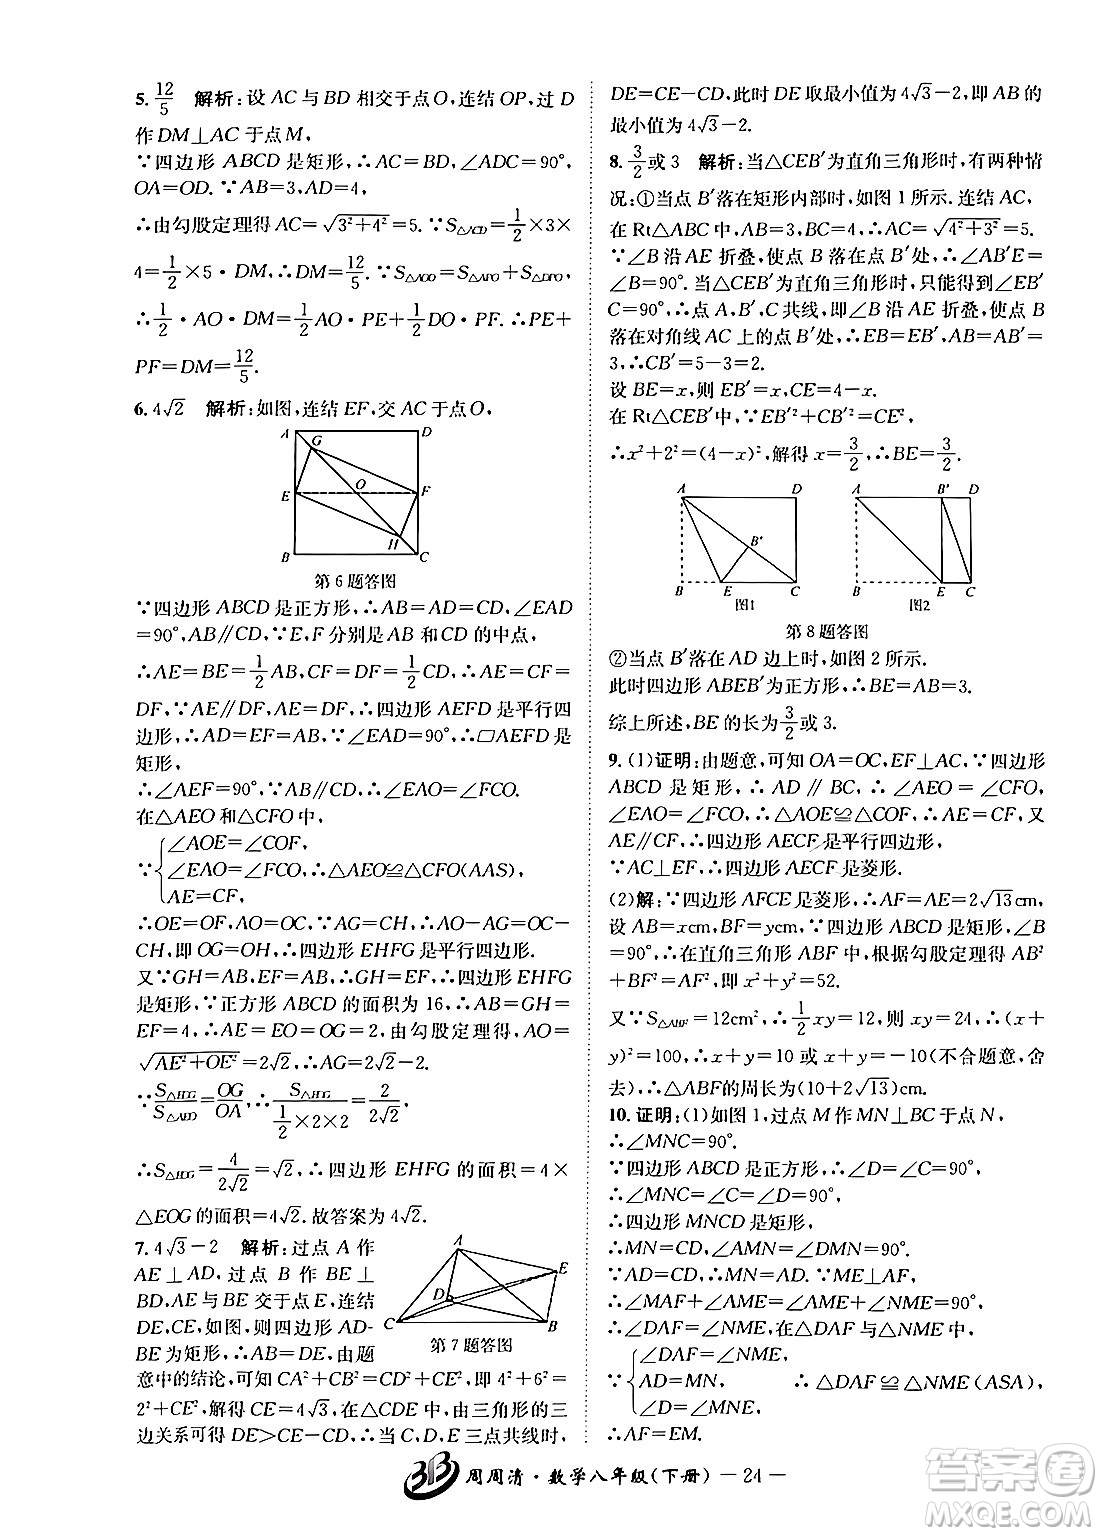 5. 12/5 解析:设 AC 与 BD 相交于点 O,连结 OP,过 D
作 DM⊥AC 于点 M,
∵四边形 ABCD 是矩形,∴AC=BD,∠ADC=90°,
OA=OD.∵AB=3,AD=4,
∴由勾股定理得 AC=√(3²+4²)=5.∵S△ACD=1/2×3×
4=1/2×5·DM,∴DM=12/5.∵S△AOD=S△APO+S△DPO,
∴1/2·AO·DM=1/2AO·PE+1/2DO·PF.∴PE+
PF=DM=12/5.
6. 4√2 解析:如图,连结 EF,交 AC 于点 O,
A G D
E O F
B H C
第 6 题答图
∵四边形 ABCD 是正方形,∴AB=AD=CD,∠EAD
=90°,AB∥CD,∵E,F 分别是 AB 和 CD 的中点,
∴AE=BE=1/2AB,CF=DF=1/2CD,∴AE=CF=
DF,∵AE∥DF,AE=DF,∴四边形 AEFD 是平行四
边形,∴AD=EF=AB,∵∠EAD=90°,∴▱AEFD 是
矩形,
∴∠AEF=90°,∵AB∥CD,∴∠EAO=∠FCO.
在△AEO 和△CFO 中,
∠AOE=∠COF,
∵ ∠EAO=∠FCO,∴△AEO≌△CFO(AAS),
AE=CF,
∴OE=OF,AO=OC,∵AG=CH,∴AO-AG=OC-
CH,即 OG=OH,∴四边形 EHFG 是平行四边形.
又∵GH=AB,EF=AB,∴GH=EF,∴四边形 EHFG
是矩形,∵正方形 ABCD 的面积为 16,∴AB=GH=
EF=4,∴AE=EO=OG=2,由勾股定理得,AO=
√(AE²+OE²)=2√2,∴AG=2√2-2.
∵S△HOG/S△AEO=OG/OA,∴S△HOG/(1/2×2×2)=2/(2√2),
∴S△HOG=4/(2√2)=√2,∴四边形 EHFG 的面积=4×
△EOG 的面积=4√2.故答案为 4√2.
7. 4√3-2 解析:过点 A 作
AE⊥AD,过点 B 作 BE⊥
BD,AE 与 BE 交于点 E,连结
DE,CE,如图,则四边形 AD-
BE 为矩形,∴DE=AB,由题
A E D C B
第 7 题答图
意中的结论,可知 CA²+CB²=CD²+CE²,即 4²+6²=
2²+CE²,解得 CE=4√3,在△CDE 中,由三角形的三
边关系可得 DE>CE-CD,∴当 C,D,E 三点共线时,
DE=CE-CD,此时 DE 取最小值为 4√3-2,即 AB 的
最小值为 4√3-2.
8. 3/2或 3 解析:当△CEB′为直角三角形时,有两种情
况:①当点 B′落在矩形内部时,如图 1 所示.连结 AC,
在 Rt△ABC 中,AB=3,BC=4,∴AC=√(4²+3²)=5.
∵∠B 沿 AE 折叠,使点 B 落在点 B′处,∴∠AB′E=
∠B=90°.当△CEB′为直角三角形时,只能得到∠EB′
C=90°,∴点 A,B′,C 共线,即∠B 沿 AE 折叠,使点 B
落在对角线 AC 上的点 B′处,∴EB=EB′,AB=AB′=
3,∴CB′=5-3=2.
设 BE=x,则 EB′=x,CE=4-x.
在 Rt△CEB′中,∵EB′²+CB′²=CE²,
∴x²+2²=(4-x)²,解得 x=3/2,∴BE=3/2.
A D B′ B E C
图1
A B′ D B E C
图2
第 8 题答图
②当点 B′落在 AD 边上时,如图 2 所示.
此时四边形 ABEB′为正方形,∴BE=AB=3.
综上所述,BE 的长为3/2或 3.
9. (1)证明:由题意,可知 OA=OC,EF⊥AC,∵四边形
ABCD 是矩形,∴AD∥BC,∴∠AEO=∠CFO,
∠EAO=∠FCO,∴△AOE≌△COF,∴AE=CF,又
AE∥CF,∴四边形 AECF 是平行四边形.
∵AC⊥EF,∴四边形 AECF 是菱形.
(2)解:∵四边形 AFCE 是菱形,∴AF=AE=2√13cm,
设 AB=xcm,BF=ycm,∵四边形 ABCD 是矩形,∠B
=90°,∴在直角三角形 ABF 中,根据勾股定理得 AB²
+BF²=AF²,即 x²+y²=52.
又∵S△ABF=12cm²,∴1/2xy=12,则 xy=24,∴(x+
y)²=100,∴x+y=10 或 x+y=-10(不合题意,舍
去),∴△ABF的周长为(10+2√13)cm.
10. 证明:(1)如图 1,过点 M 作 MN⊥BC 于点 N,
∴∠MNC=90°.
∵四边形 ABCD 是正方形,∴∠D=∠C=90°,
∴∠MNC=∠C=∠D=90°,
∴四边形 MNCD 是矩形,
∴MN=CD,∠AMN=∠NMD=90°.
∵AD=CD,∴AD=MN.∵ME⊥AF,
∴∠MAF+∠AFD=∠MAF+∠AME=90°,
∴∠DAF=∠NME,在△DAF 与△NME 中,
∠DAF=∠NME,
∵ AD=MN, ∴△DAF≌△NEM(ASA),
∠D=∠MNE,
∴AF=EM.
周周清·数学八年级(下册) — 24 —
答案圈
MXQE.COM